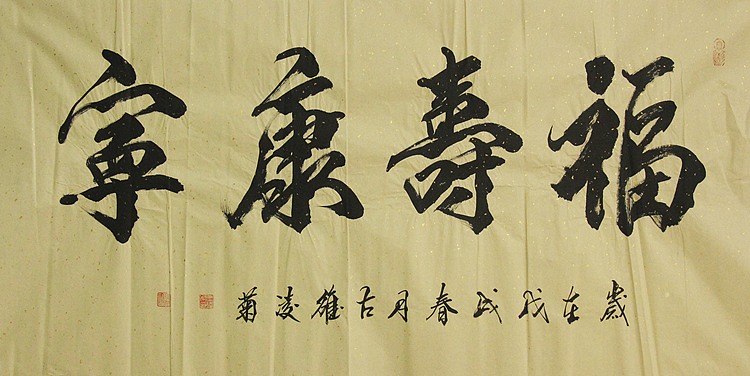 福壽康寧
歲在戊戌春月古雒凌菊